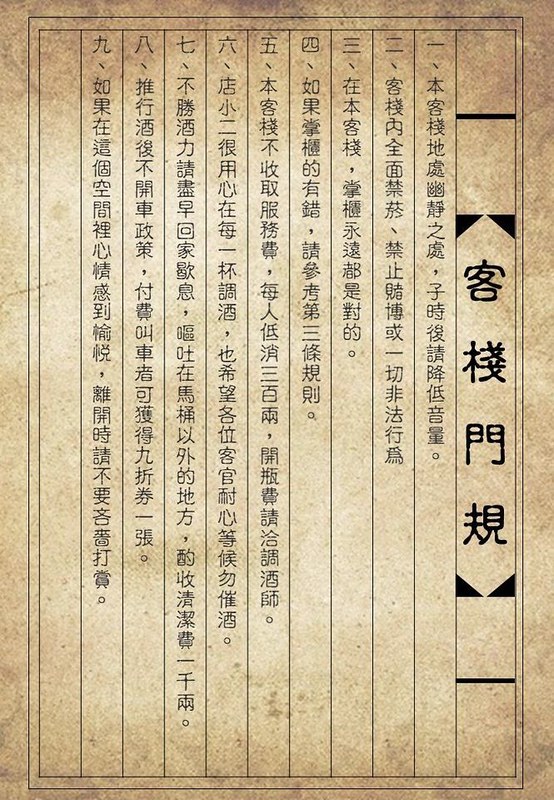 客棧門規
一、本客棧地處幽靜之處，子時後請降低音量。
二、客棧內全面禁菸、禁止賭博或一切非法行為
三、在本客棧，掌櫃永遠都是對的。
四、如果掌櫃的有錯，請參考第三條規則。
五、本客棧不收取服務費，每人低消三百兩，開瓶費請洽調酒師。
六、店小二很用心在每一杯調酒，也希望各位客官耐心等候勿催酒。
七、不勝酒力請盡早回家歇息，嘔吐在馬桶以外的地方，酌收清潔費一千兩。
八、推行酒後不開車政策，付費叫車者可獲得九折券一張。
九、如果在這個空間裡心情感到愉悅，離開時請不要吝嗇打賞。